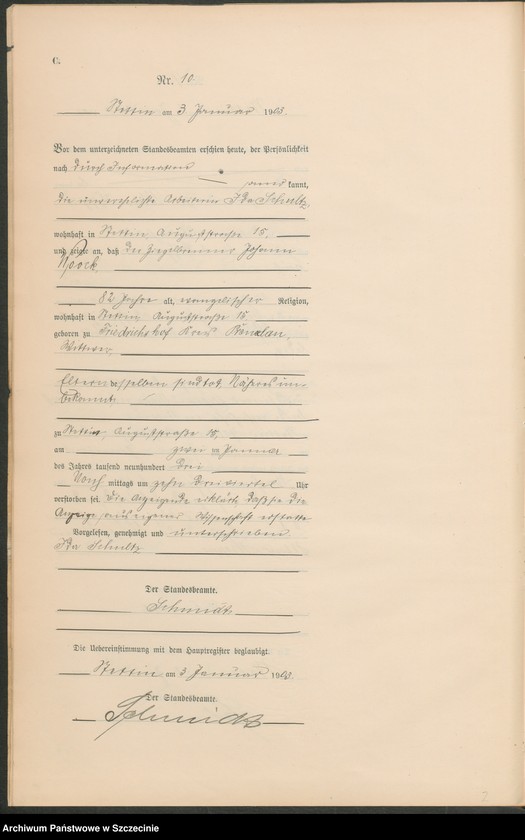 C.
Nr. 10
Stettin am 3 Januar 1903.
Vor dem unterzeichneten Standesbeamten erschien heute, der Persönlichkeit
nach durch Information
kannt,
die unverehelichte Arbeiterin Ida Schultz,
wohnhaft in Stettin, Auguststraße 15,
und zeigte an, daß der Johann
82 Jahre alt, evangelischer Religion,
wohnhaft in Stettin Auguststraße 15,
geboren zu Friedrichshof Kreis
Wittwer,
Eltern desselben sind tot, Näheres un-
bekannt
zu Stettin, Auguststraße 15,
am zwei Januar
des Jahres tausend neunhundert drei
Vor mittags um zehn dreiviertel Uhr
verstorben sei. Die Anzeigende erklärte daß sie die
Anzeige aus eigener Wissenschaft erstatte
Vorgelesen, genehmigt und unterschrieben
Ida Schultz
Der Standesbeamte.
Schmidt
Die Uebereinstimmung mit dem Hauptregister beglaubigt.
Stettin am 3 Januar 1903.
Der Standesbeamte.
Schmidt
Archiwum Państwowe w Szczecinie